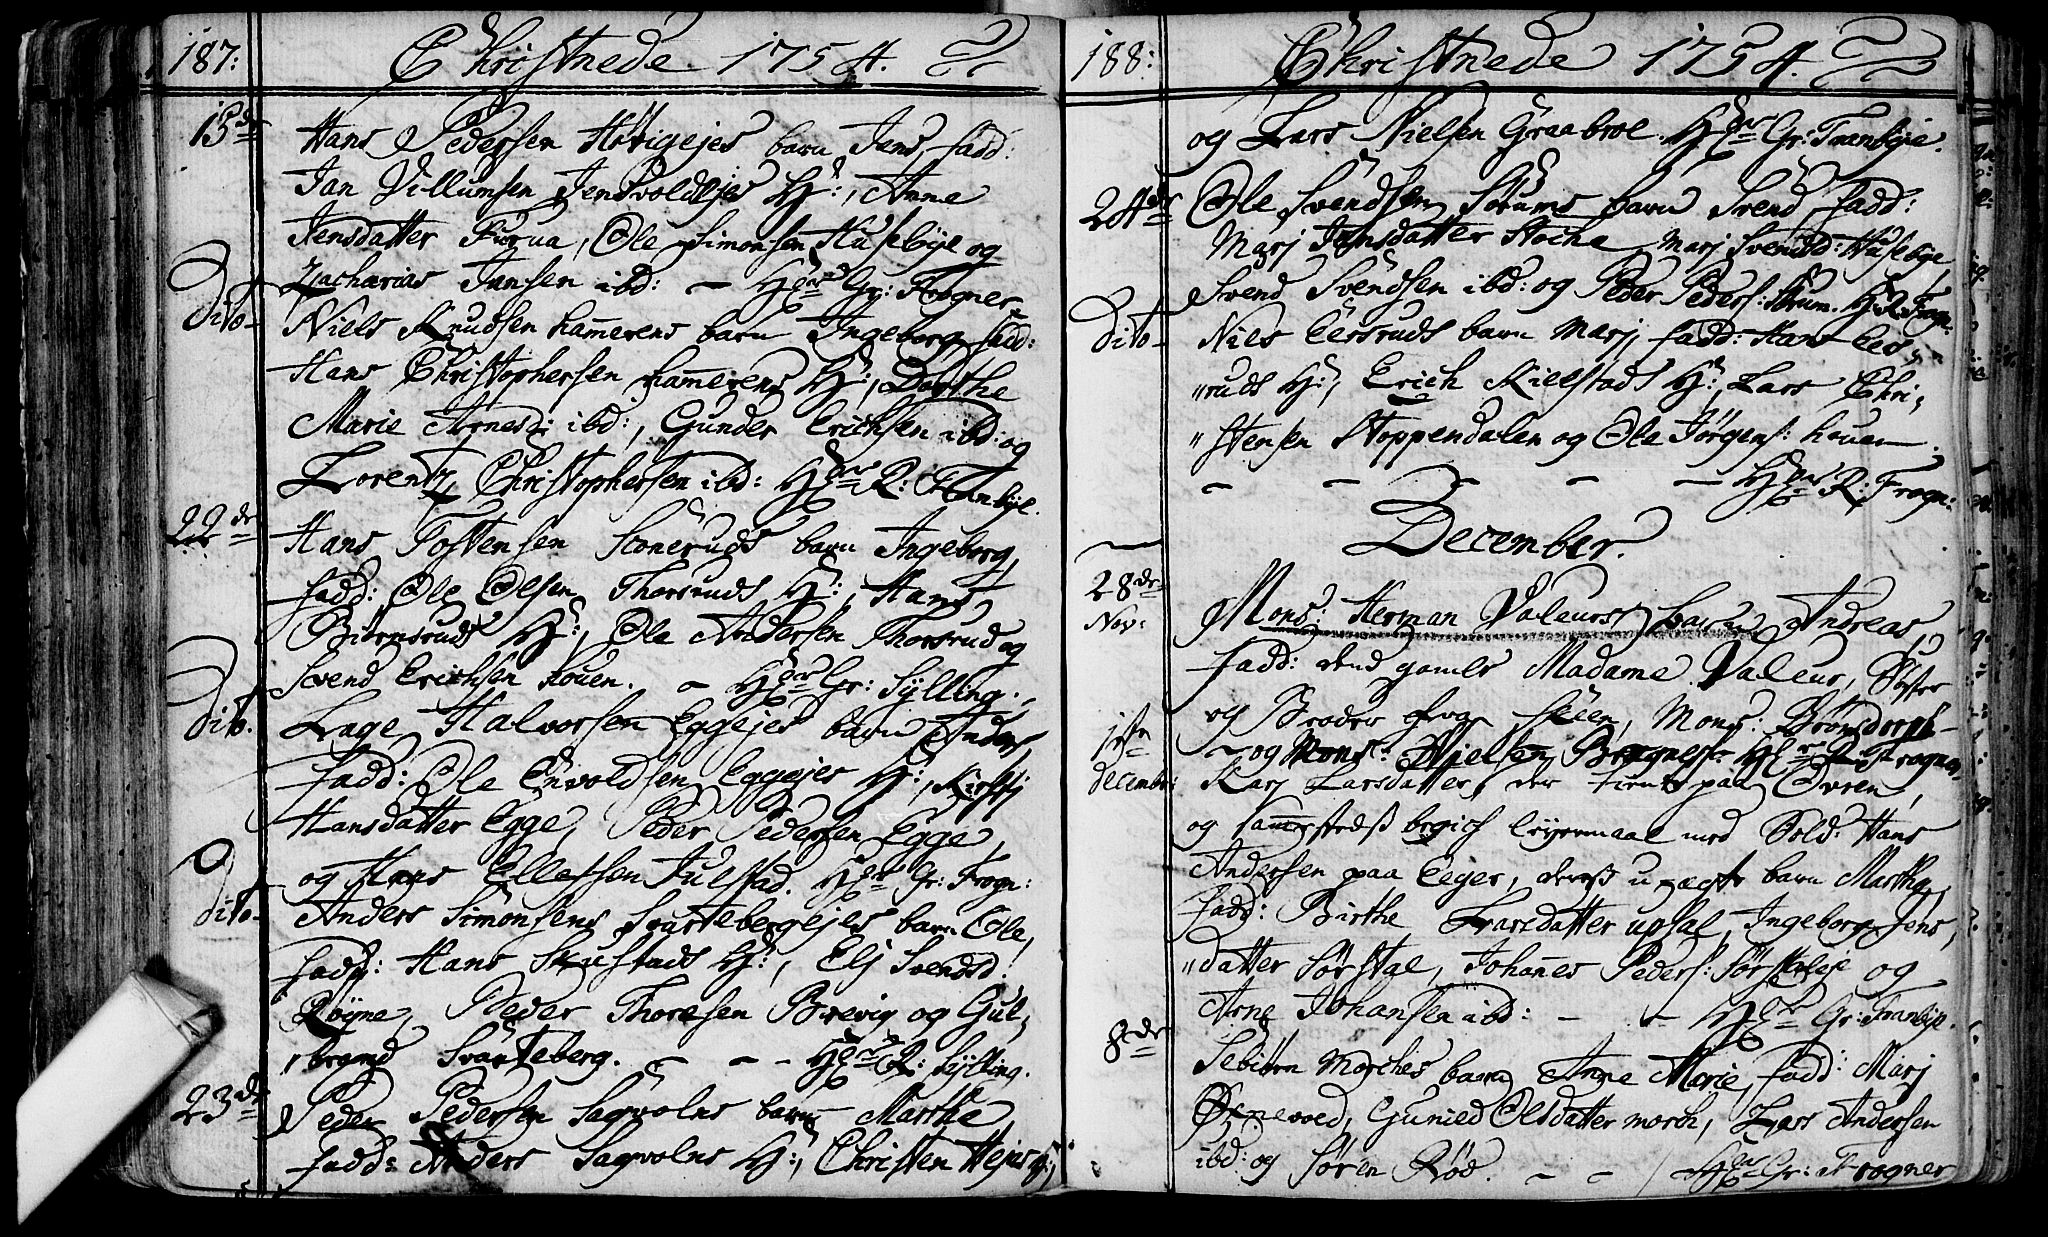 187: Christnede 1754.
15de Hans Pedersen Høvigejes barn Jens, fadd:
Jan Villumsen Jensvoldejes H:, Anne
Jensdatter Furua, Ole Simonsen Huseby og
Zacharias Jansen ibd: - Hr Gr: Frogner
dito- Niels Knudsen hamerens barn Ingeborg, fadd:
Hans Christophersen hamerens H:, Dorthe
Marie Arnesd: ibd:, Gunder Erichsen ibd: og
Lorentz Christophersen ibd: Hr R: Tranbye.
22de Hans Tostensen Stoneruds barn Ingeborg,
fadd: Ole Olsen Thorsruds H:, Hans
Biørnsruds H:, Ole Andersen Thorsrud og
Svend Erichsen houen. - Gr: Sylling.
dito. Lage Halvorsen Eggejes barn Anders,
fadd: Ole Envoldsen Eggejes H:, Kirstj
Hansdatter Egge, Peder Pedersen Egge
og Hans Ellefsen Julstad. Gr: Frogn:
dito- Anders Simonsens Svartebergejes barn Ole,
fadd: Hans Skustads H:, Elj Svendsd:
Røyne, Peder Thoresen Brevig og Gul,
brand Svarteberg. - - - R: Sylling.
23de Peder Pedersen Sagvolns barn Marthe
fadd: Anders Sagvolns H:, Christen Hejns
188: Christnede 1754.
og Lars Nielsen Graabroe. Gr: Tranbye.
24de Ole Svendsen Sørums barn Svend, fadd:
Marj Jensdatter Stoche, Marj Svensd: Husebye
Svend Svendsen ibd: og Peder Peders: Sørum. R: Frogn:
dito- Niels Eersruds barn Marj, fadd: Hans Eers-
"ruds H:, Erich Kielstads H:, Lars Chri,
"stensen Stoppendalen og Ole Jørgens: houen.
- - - - - R: Frogn:
December.
28de Nov: Mons: Herman Valeurs barn Andreas,
fadd: dend gamle Madame Valeur, Søster
og Broder fra Skeen, Mons:
- og Mons: Nielsen Bragnes- R: Frogner
1ste december: Karj Larsdatter, der tiente paa Ovren,
og sammestedss begich leyermaal med Sold: Hans
Andersen paa Eeger, deress u-ægte barn Marthe,
fadd: Birthe Larsdatter upsal, Ingeborg Jens,
"datter Sørstae, Johanes Peders: Sørstaeje og
Arne Johansen ibd: - - Gr: Tranbye.
8de Sebiørn Morches barn Anne Marie, fadd: Marj
Øgnevold, Gunild Olsdatter morch, Lars Andersen
ibd: og Søren Rød. - - Gr: Frogner